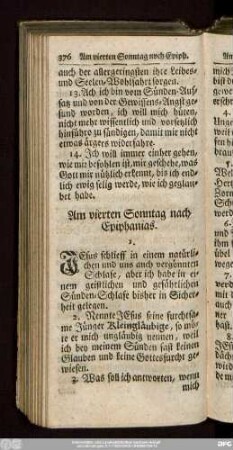 376 Am vierten Sonntag nach Epiph.
auch der allergeringsten ihre Leibes-
und Seelen-Wohlfahrt sorgen.
13. Ach ich bin vom Sünden-Auß-
satz und von der Gewissens-Angst ge-
sund worden, ich will mich hüten,
nicht mehr wissentlich und vorsetzlich
hinführo zu sündigen, damit mir nicht
etwas ärgers widerfahre.
14. Ich will immer einher gehen,
wie mir befohlen ist, mir geschehe, was
Gott mir nützlich erkennt, bis ich end-
lich ewig selig werde, wie ich geglau-
bet habe.
Am vierten Sonntag nach
Epiphanias.
1.
JEsus schlieff in einem natürli-
chen und uns auch vergönneten
Schlafe, aber ich habe in ei-
nem geistlichen und gefährlichen
Sünden-Schlafe bisher in Sicher-
heit gelegen.
2. Nennte JEsus seine furchtsa-
me Jünger Kleingläubige, so mö-
te er mich ungläubig nennen, weil
ich bey meinem Sünden fast keinen
Glauben und keine Gottesfurcht ge-
wiesen.
3. Was soll ich antworten, wenn
mich